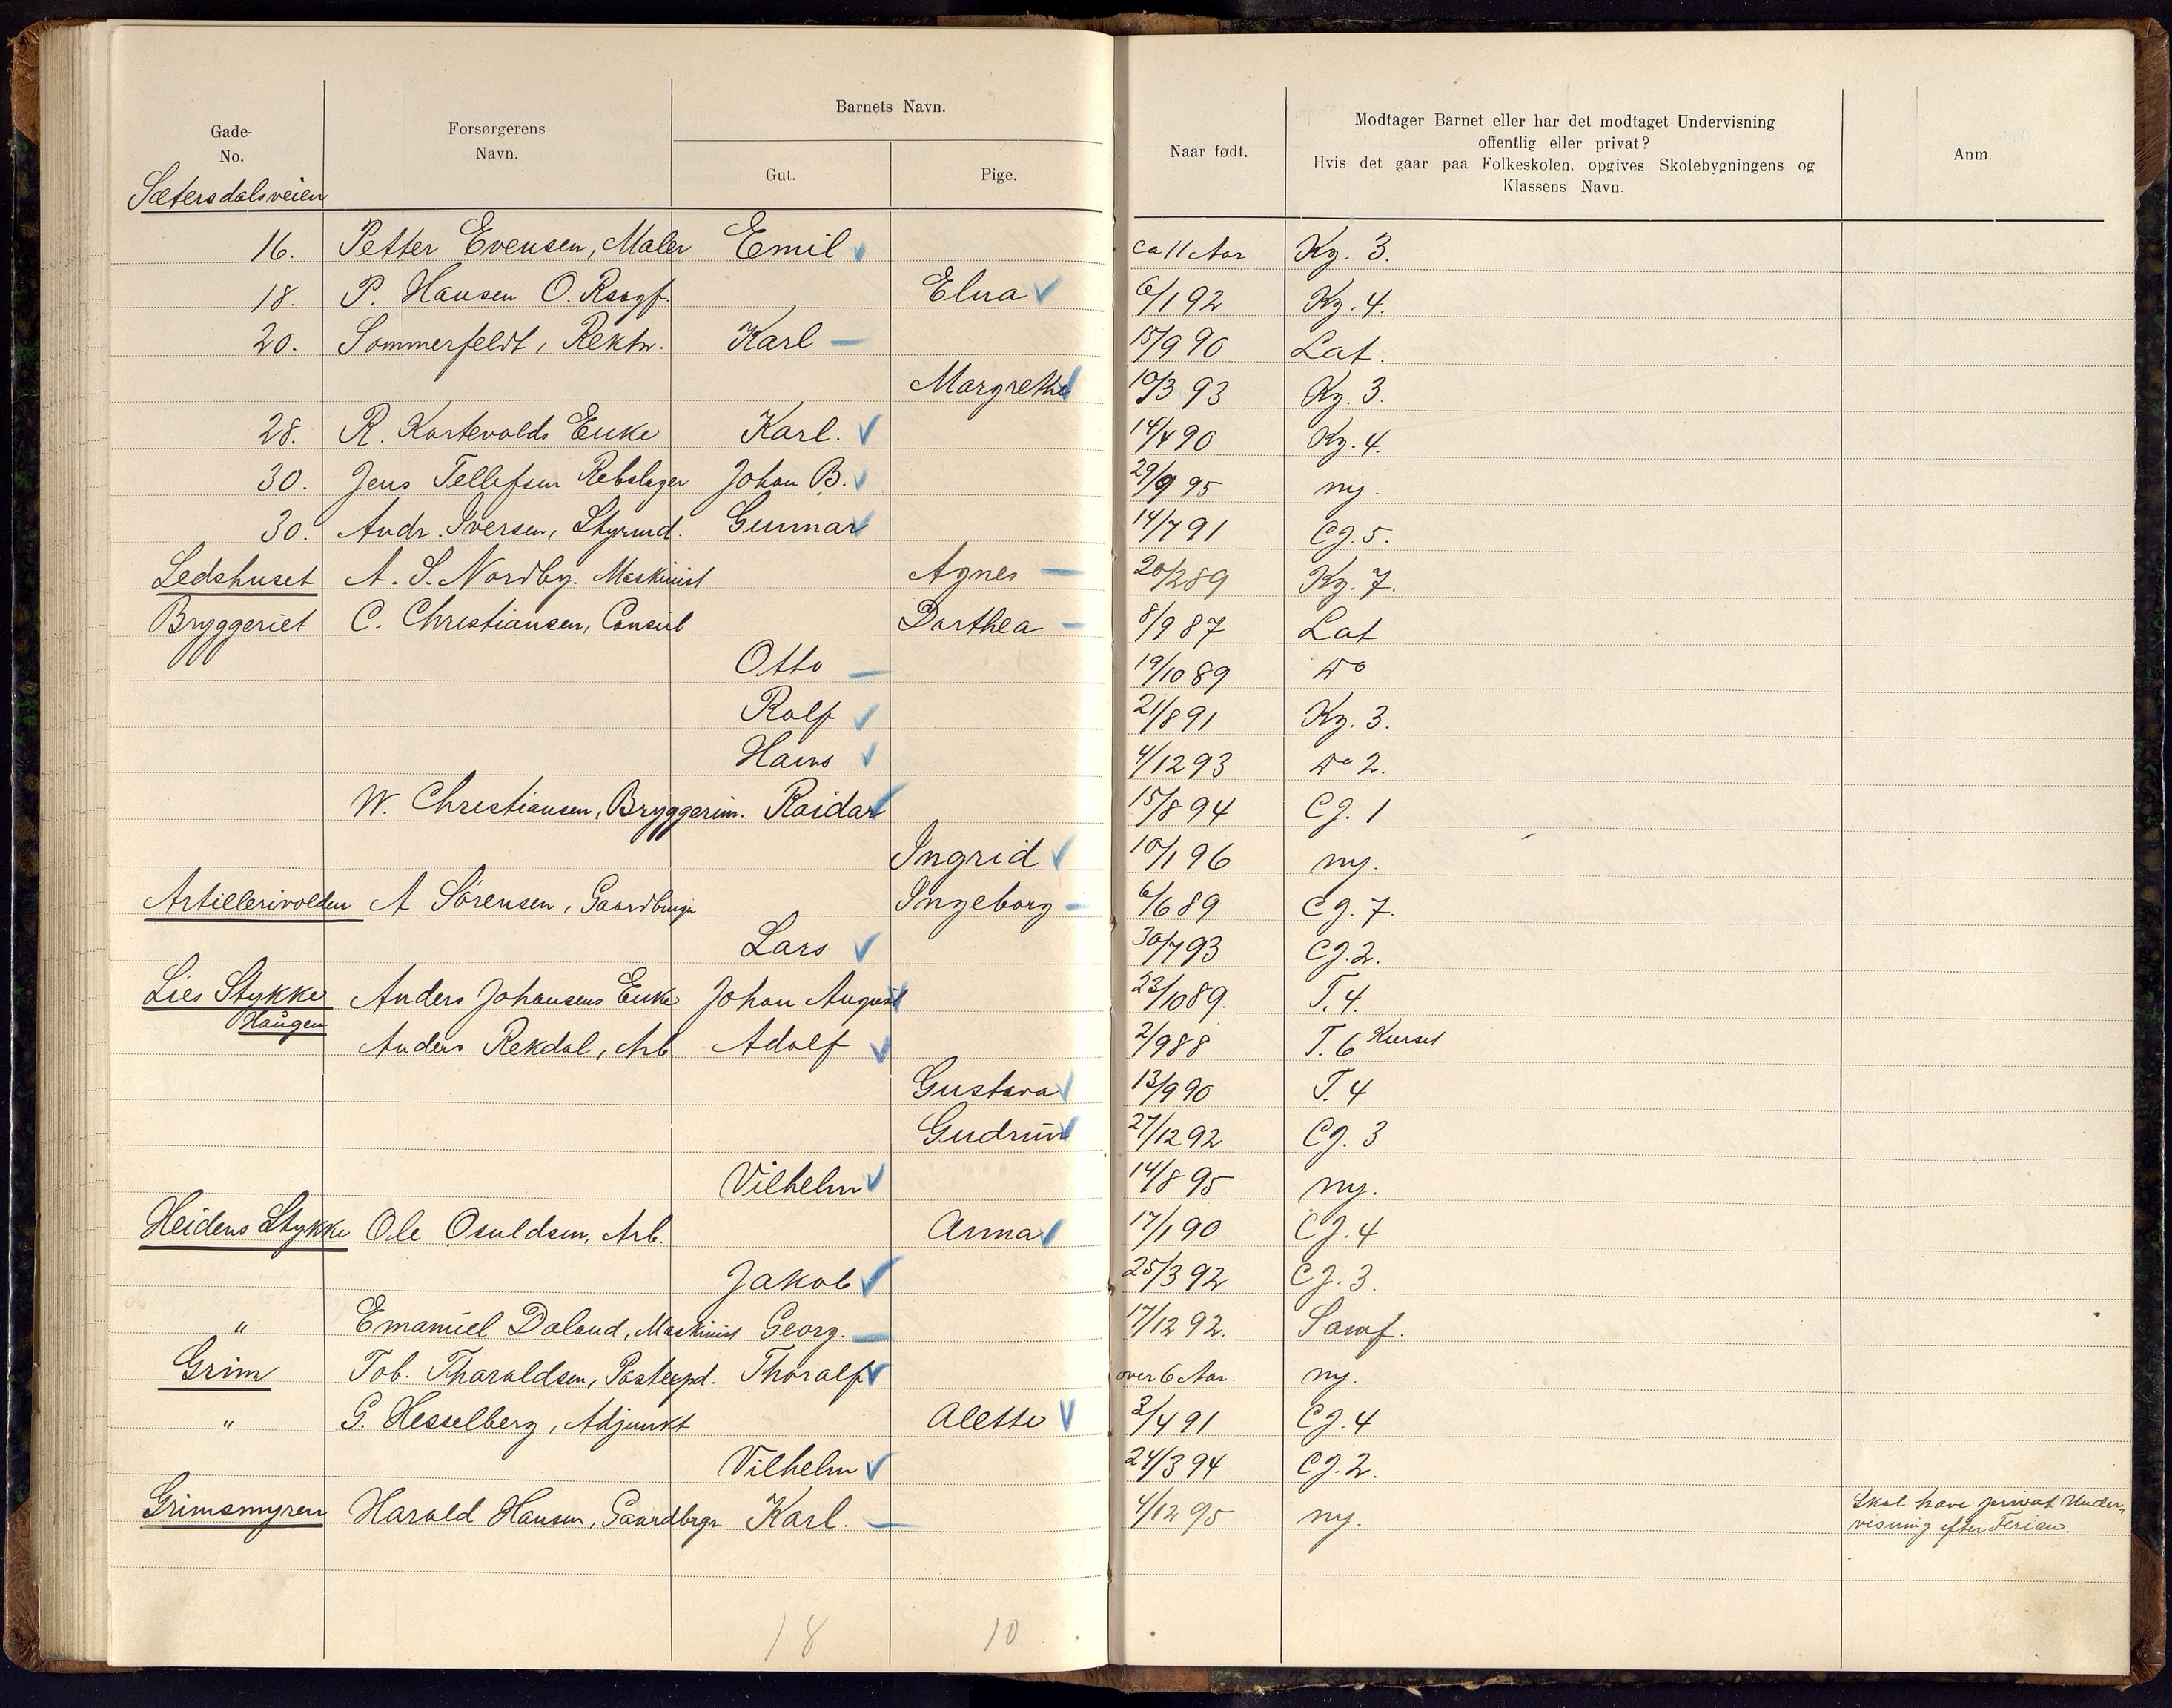 Gade-
No.
Forsørgerens
Navn.
Barnets Navn.
Gut.
Pige.
Naar født.
Modtager Barnet eller har det modtaget Undervisning
offentlig eller privat?
Hvis det gaar paa Folkeskolen. opgives Skolebygningens og
Klassens Navn.
Anm.
Sætersdalsveien
16. Petter Evensen, Maler Emil ca 11 Aar Kg. 3.
18. P. Hansen O. Rsagf. Elna 6/1 92 Kg. 4.
20. Sommerfeldt, Rektor. Karl 15/9 90 Lat.
Margrethe 10/3 93 Kg. 3.
28. R. Kortevolds Enke Karl. 14/4 90 Kg. 4.
30. Jens Tellefsen Rebslager Johan B. 29/9 95 ny.
30. Andr. Iversen, Styrmd. Gunnar 14/7 91 Cg. 5.
Ledshuset A. S. Nordby. Maskinist Agnes 20/2 89 Kg. 7.
Bryggeriet C. Christiansen, Consul Dorthea 8/9 87 Lat
Otto 19/10 89 Do
Rolf 21/8 91 Kg. 3.
Hans 4/12 93 Do 2.
W. Christiansen, Bryggerim. Raidar 15/8 94 Cg. 1
Ingrid 10/1 96 ny.
Artillerivolden A Sørensen, Gaardbruger Ingeborg 6/6 89 Cg. 7.
Lars 30/7 93 Cg. 2.
Lies Stykke Anders Johansens Enke Johan August 23/10 89. T. 4.
Haugen
Anders Rekdal, Arb. Adolf 2/9 88 T. 6 Kurset
Gustava 13/9 90 T. 4
Gudrun 27/12 92 Cg. 3
Vilhelm 14/8 95 ny.
Heidens Stykke Ole Osuldsen, Arb. Anna 17/1 90 Cg. 4
Jakob 25/3 92 Cg. 3.
" Emanuel Daland, Maskinist Georg. 17/12 92. Samf.
Grim Tob. Tharaldsen, Postexpd. Thoralf over 6 Aar. ny.
" G. Hesselberg, Adjunkt Alette 3/4 91 Cg. 4
Vilhelm 24/3 94 Cg. 2.
Grimsmyren Harald Hansen, Gaardbrgr. Karl. 4/12 95 ny. Skal have privat Under-
visning efter Ferien.
18 10